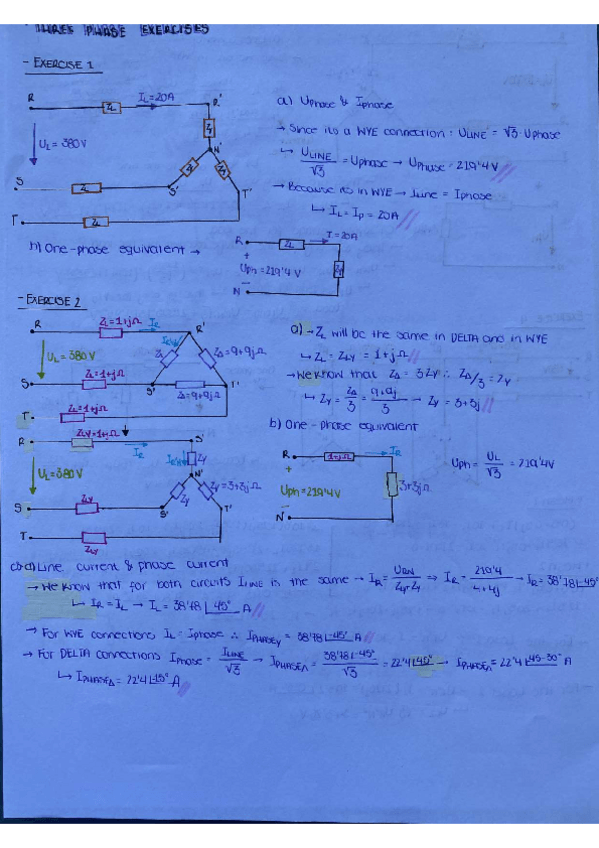 THREE PHASE EXERCISES
- EXERCISE 1
R
IL=20A
R'
ZL
Zy
UL = 380V
N'
S
ZL
S'
T'
T
ZL
a) Uphase & Iphase
→ Since its a WYE connection : ULINE = √3 · Uphase
↳ ULINE/√3 = Uphase → Uphase = 219'4V //
→ Because its in WYE → Iline = Iphase
↳ IL = Ip = 20A //
b) One-phase equivalent →
R
ZL
I=20A
+
Uph = 219'4 V
-
N
- EXERCISE 2
R
ZL=1+jΩ
IR
R'
UL=380V
ZΔ=9+9jΩ
S
ZL=1+jΩ
S'
ZΔ=9+9jΩ
T'
T
ZL=1+jΩ
a) → ZL will be the same in DELTA and in WYE
↳ ZL = ZLY = 1+jΩ //
→ We know that ZΔ = 3ZY ∴ ZΔ/3 = ZY
↳ ZY = ZΔ/3 = 9+9j/3 → ZY = 3+3j //
R
ZLY=1+jΩ
IR
UL=380V
ZY
N'
ZY=3+3jΩ
S
ZLY
S'
T'
T
ZLY
b) One-phase equivalent
R
1+jΩ
IR
+
Uph = 219'4V
3+3jΩ
N
Uph = UL/√3 = 219'4V
c) d) Line current & phase current
→ We know that for both circuits ILINE is the same → IR = URN/ZLY+ZY ⇒ IR = 219'4/4+4j → IR = 38'78|-45° A
↳ IR = IL → IL = 38'78|-45° A //
→ For WYE connections IL = Iphase ∴ IPHASEY = 38'78|-45° A //
→ For DELTA connections Iphase = ILINE/√3 → IPHASEΔ = 38'78|-45°/√3 = 22'4|45° → IPHASEΔ = 22'4|45-30° A
↳ IPHASEΔ = 22'4|-15° A //